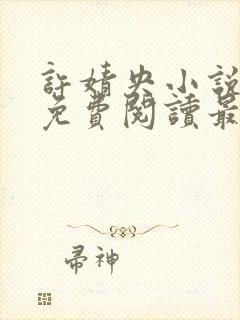 許婧央小說
免費閱讀最
帚神